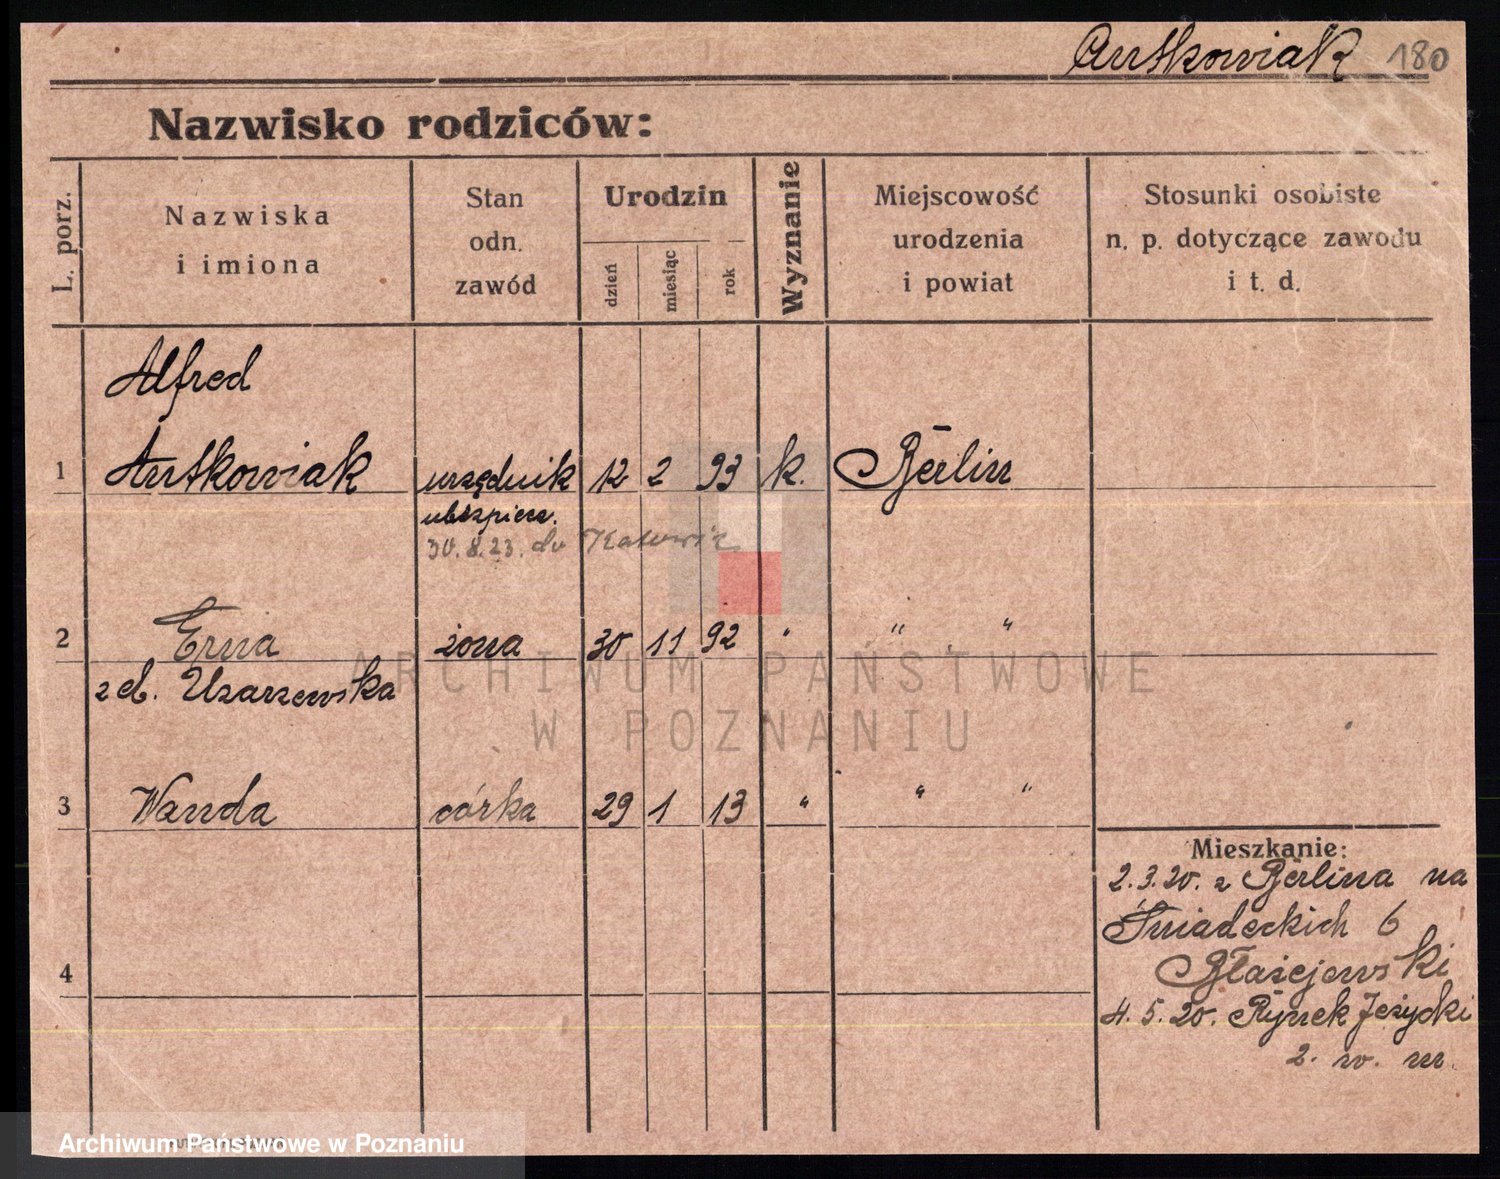 Antkowiak 180
Nazwisko rodziców:
L. porz.
Nazwiska
i imiona
Stan
odn.
zawód
Urodzin
dzień
miesiąc
rok
Wyznanie
Miejscowość
urodzenia
i powiat
Stosunki osobiste
n. p. dotyczące zawodu
i t. d.
Alfred
1 Antkowiak urzędnik 12 2 93 k. Berlin
ubezpiecz.
30.8.23. do Katowic
2 Erna żona 30 11 92 " " "
z d. Uzarzewska
ARCHIWUM PAŃSTWOWE
W POZNANIU
3 Wanda córka 29 1 13 " " "
Mieszkanie:
2.3.20. z Berlina na
Śniadeckich 6
Błażejewski
4
4.5.20. Rynek Jeżycki
2. w. m.
Archiwum Państwowe w Poznaniu